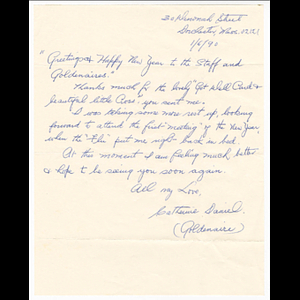 Street
Dorchester, Mass. 02121
1/6/90
"Greetings & Happy New Year to the Staff and
Goldenaires."
Thanks much for the lovely "Get Well Card &
beautiful little Rose" you sent me.
I was taking some more rest up, looking
forward to attend the first meeting of the New Year,
when the "Flu" put me right back in bed.
At this moment I am feeling much better
& hope to be seeing you soon again.
All my Love,
Catherine Daniel.
(Goldenaire)